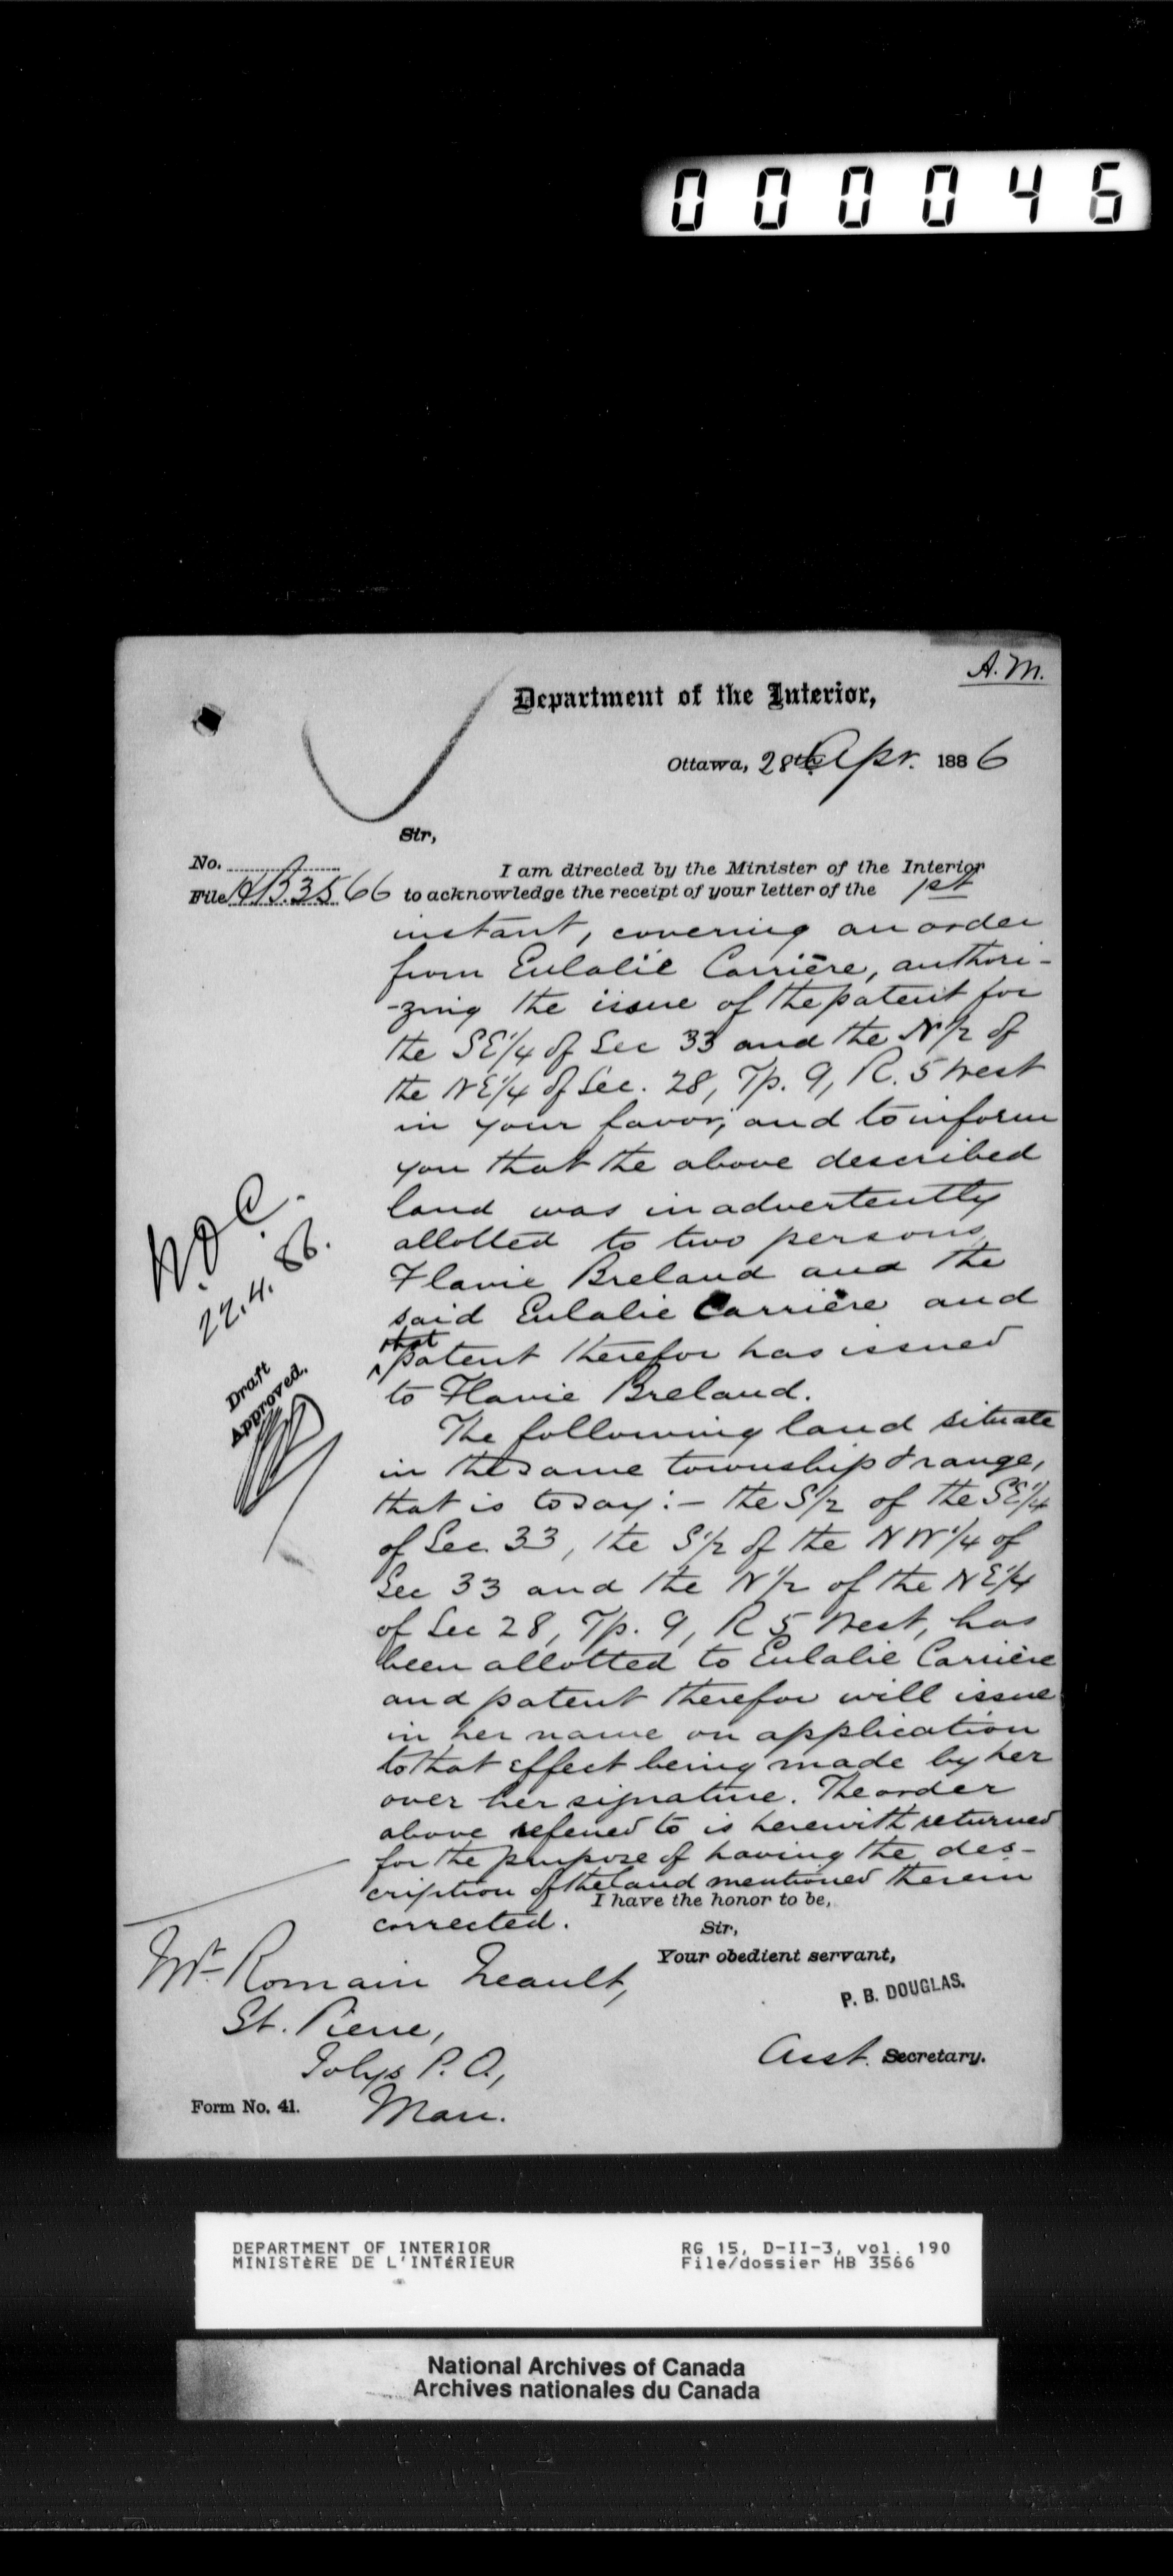 000046
A. M.
Department of the Interior,
Ottawa, 28th Apr. 1886
Sir,
No.
I am directed by the Minister of the Interior
File HB.3566 to acknowledge the receipt of your letter of the 1st
instant, covering an order
from Eulalie Carrière, authori-
-zing the issue of the patent for
the SE1/4 of Sec 33 and the N1/2 of
the NE1/4 of Sec. 28, Tp. 9, R. 5 West
in your favor; and to inform
you that the above described
land was inadvertently
allotted to two persons
Flavie Breland and the
said Eulalie Carrière and
that
patent therefor has issued
to Flavie Breland.
22.4.86.
Draft
Approved.
The following land situate
in the same township & range,
that is to say:- the S1/2 of the SE1/4
of Sec. 33, the S1/2 of the NW1/4 of
Sec 33 and the N1/2 of the NE1/4
of Sec 28, Tp. 9, R 5 West, has
been allotted to Eulalie Carrière
and patent therefor will issue
in her name on application
to that effect being made by her
over her signature. The order
above referred to is herewith returned
for the purpose of having the des-
cription of the land mentioned therein
I have the honor to be,
corrected.
Sir,
Your obedient servant,
P. B. DOUGLAS.
Asst. Secretary.
Mr. Romain Neault,
St. Pierre,
Jolys P. O.,
Man.
Form No. 41.
DEPARTMENT OF INTERIOR
MINISTÈRE DE L'INTÉRIEUR
RG 15, D-II-3, vol. 190
File/dossier HB 3566
National Archives of Canada
Archives nationales du Canada